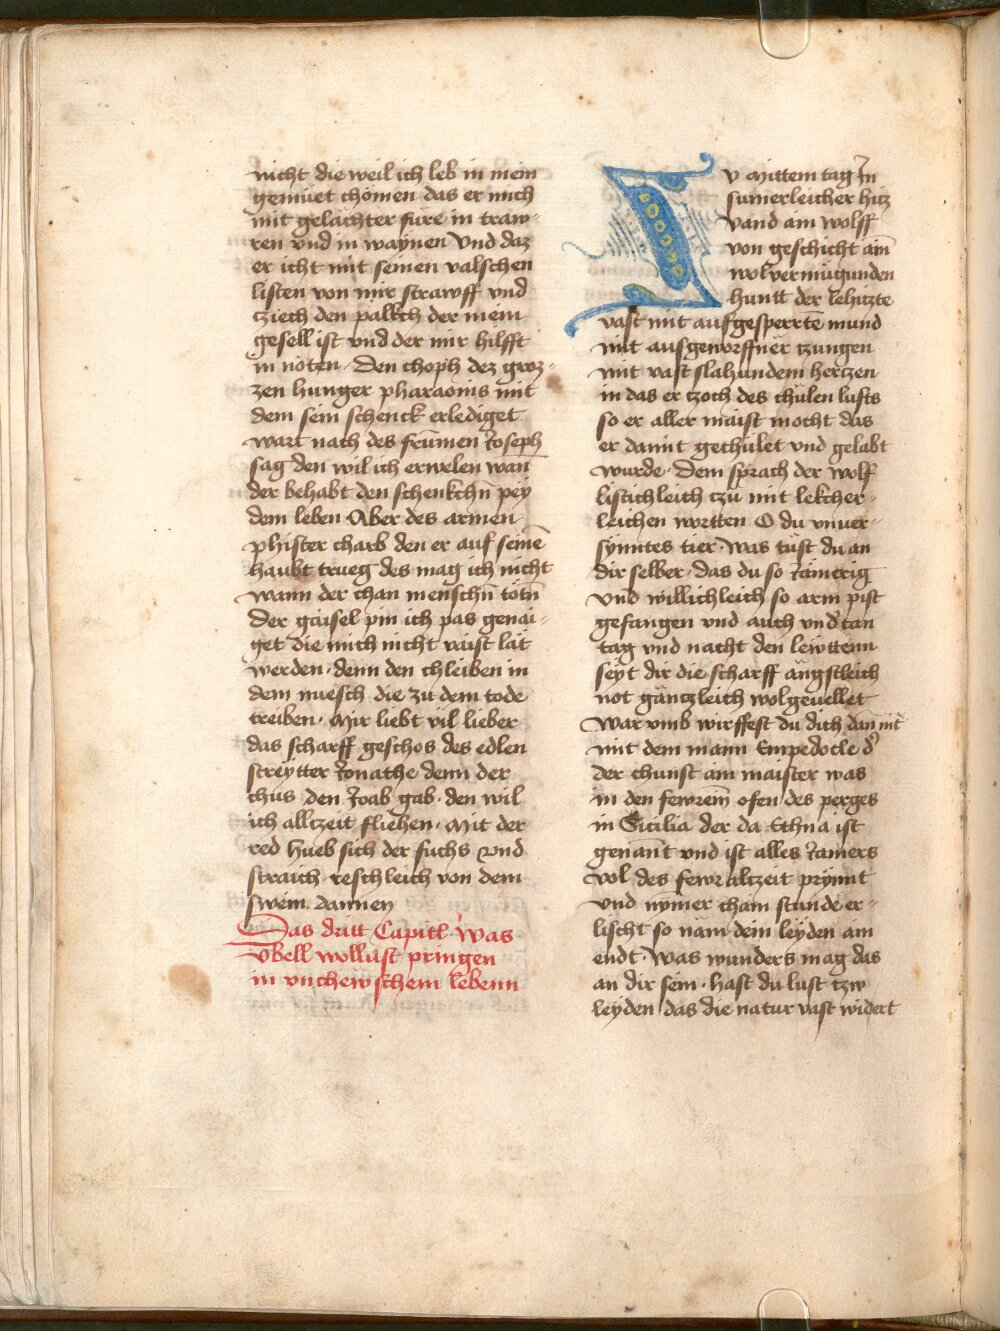 nicht die weil ich leb in mein
gemüet chömen das er mich
mit gelächter füre in traw-
ren vnd in waynen Vnd daz
er icht mit seinen valschen
listen von mir strawff vnd
cziech den palkch der mein
gesell ist vnd der mir hilfft
in nöten · Den choph dez groz-
zen hunger pharaonis mit
dem sein schenck erlediget
wart nach des frümen Joseph
sag den wil ich erwelen wan̄
der behabt den schenkchn̄ pey
dem leben Aber des armen
phister charb den er auf seinē
haubt trueg des mag ich nicht
wann der chan menschn̄ tötn̄
Der gaisel pin ich pas genai-
get die mich nicht vaist lät
werden · denn den chleiben in
dem muesch die zu dem tode
treiben · Mir liebt vil lieber
das scharff geschos des edlen
streytter Jonathe denn der
chus den Joab gab · den wil
ich allczeit fliehen · Mit der
red hueb sich der fuchs vnd
straich reschleich von dem
swein dannen
Das dritt Capitl · Was
vbell wollust pringen
in vnchewschem lebenn
I
v Mittem tag In
sumerleicher hitz
vand ain wolff
von geschicht ain̄
wolvermugunden
huntt der lehitzte
vast mit aufgesperrtē mund
mit ausgeworffner tzungen
mit vast slahundem hertzen
in das er tzoch des chülen lufts
so er aller maist mocht das
er damit gechület vnd gelabt
wurde · Dem sprach der wolf
listichleich tzü mit lekcher-
leichen wortten O du vnuer-
synntes tier · Was tüst du an
dir selber · das du so Jämerig
vnd willichleich so arm pist
gefangen vnd auch vnd'tan
tag vnd nacht den lewttenn
seyt dir die scharff ängstleich
not gänczleich wolgeuellet
War vmb wirffest du dich dan̄ nit
mit dem mann Empedocle d'
der chunst ain maister was
in den fewrein̄ ofen des perges
in Sicilia der da Ethna ist
genan̄t vnd ist alles Jamers
vol des fewr altzeit prynnt
vnd nymer chain stunde er-
lischt so näm dem leyden ain
endt · Was wunders mag das
an dir sein · hast du lust tzw
leyden das die natur vast widert